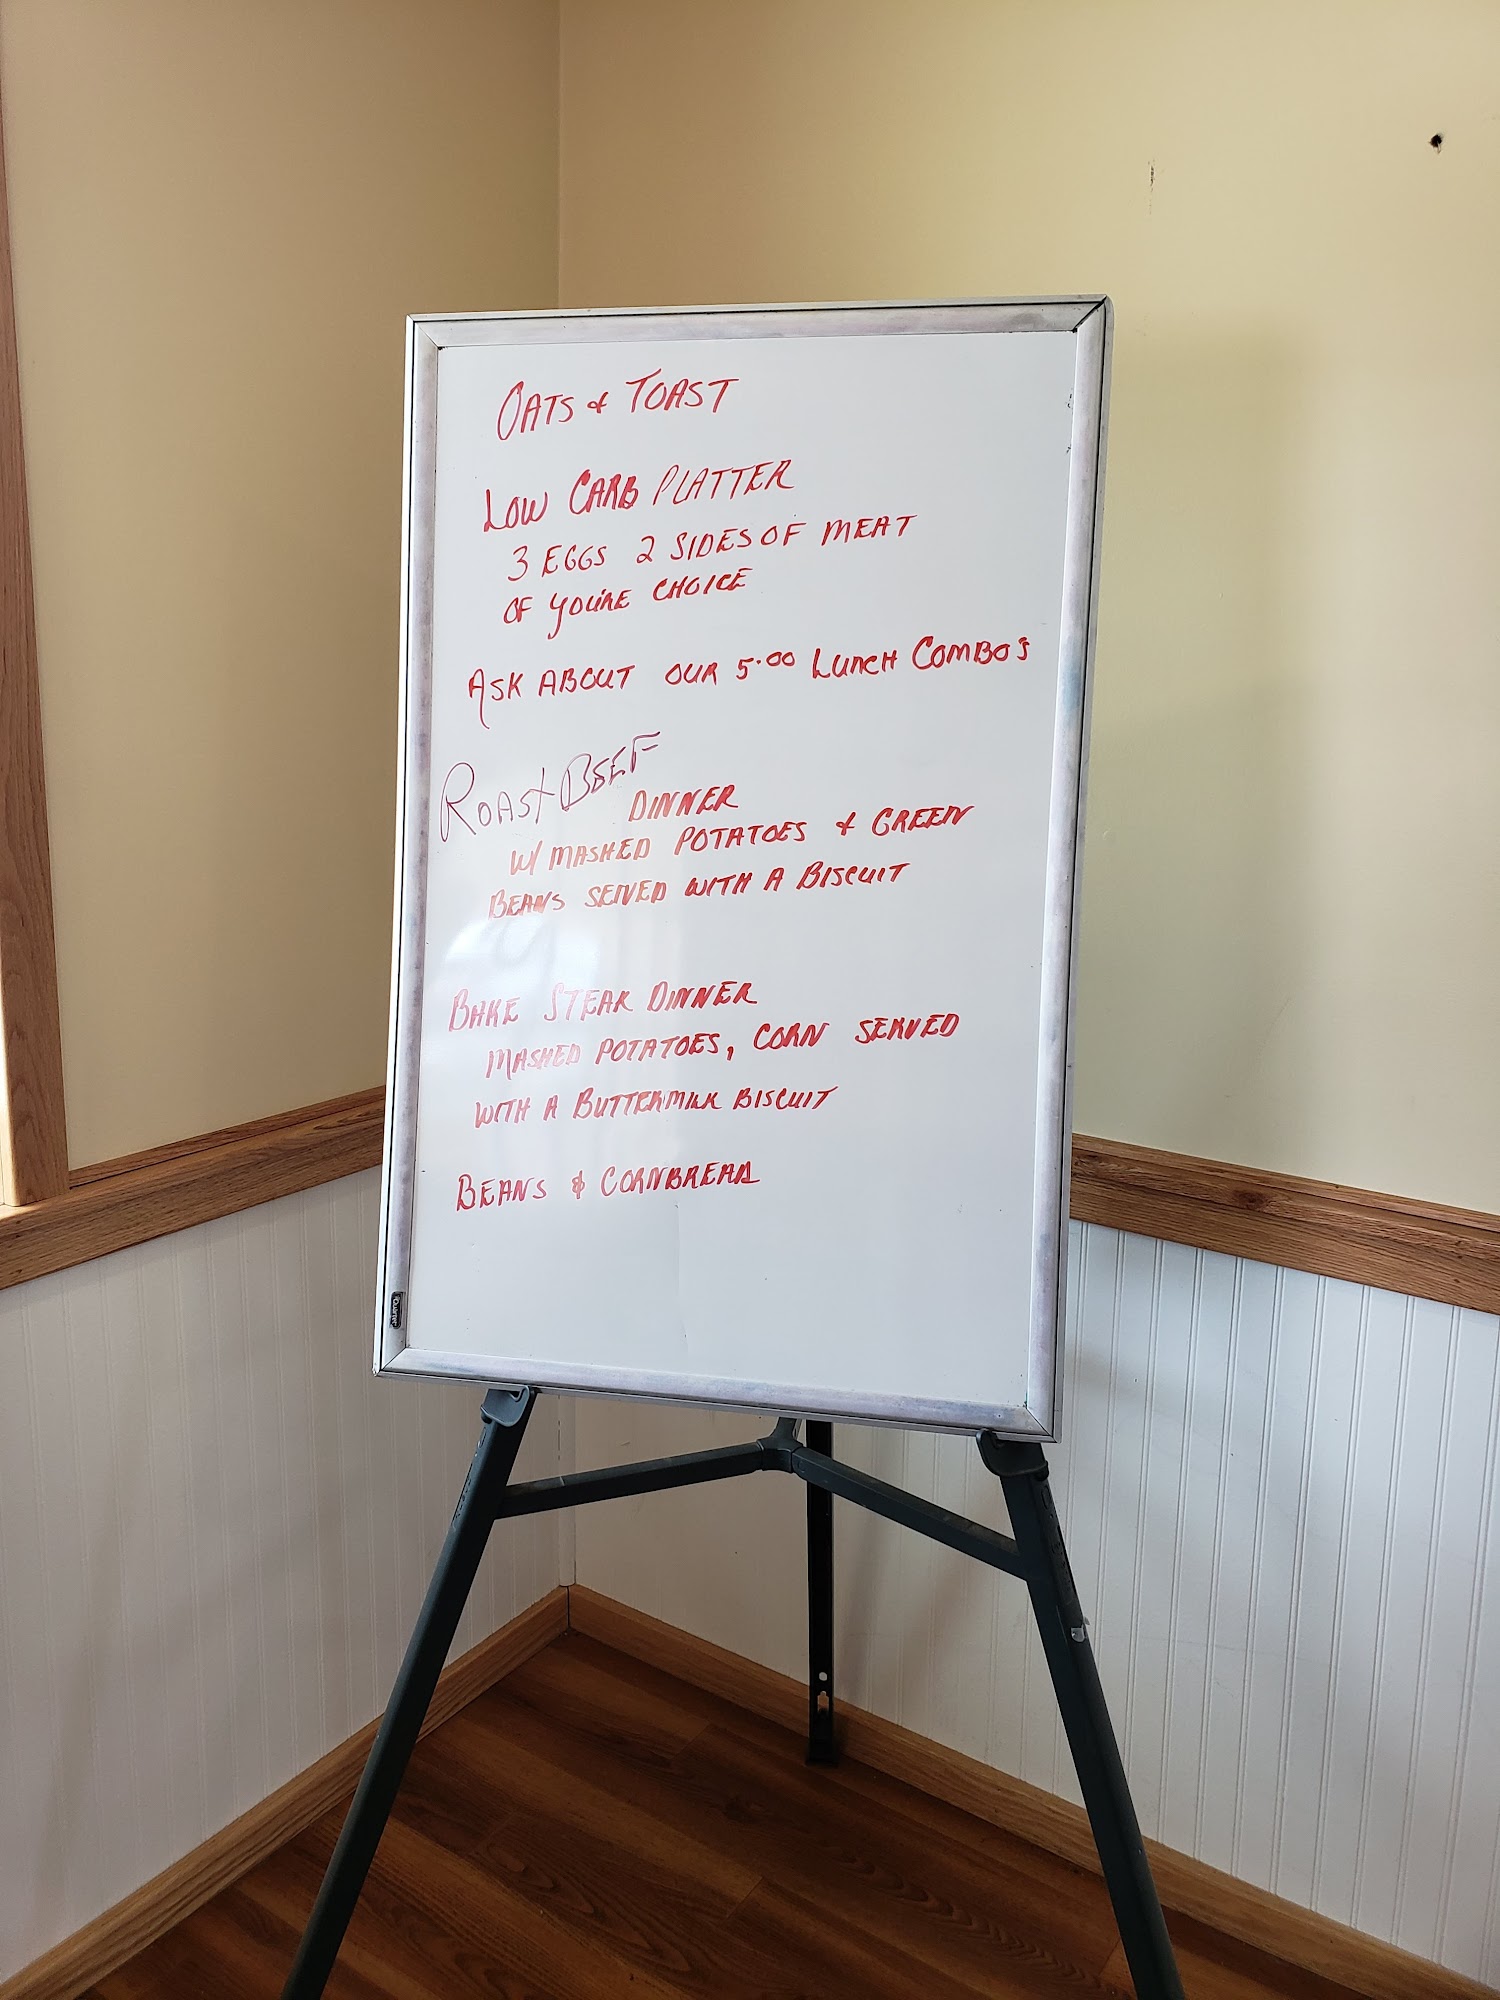 OATS & TOAST
LOW CARB PLATTER
3 EGGS 2 SIDES OF MEAT
OF YOU'RE CHOICE
ASK ABOUT OUR 5.00 LUNCH COMBO'S
ROAST BEEF
DINNER
W/ MASHED POTATOES & GREEN
BEANS SERVED WITH A BISCUIT
BAKE STEAK DINNER
MASHED POTATOES, CORN SERVED
WITH A BUTTERMILK BISCUIT
BEANS & CORNBREAD
Quartet